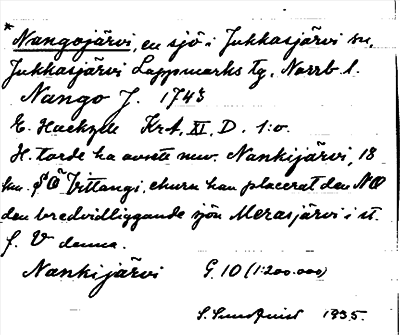 * Nangojärvi, en sjö i Jukkasjärvi sn,
Jukkasjärvi Lappmarks tg, Norrb l.
Nango J. 1743
E. Hackzell Krt. XI, D. 1:o.
H. torde ha avsett nuv. Nankijärvi, 18
km. SÖ Vittangi, ehuru han placerat den NO
den bredvidliggande sjön Merasjärvi i st.
f. V denna.
Nankijärvi G. 10 (1:200.000)
S. Sundquist 1935.